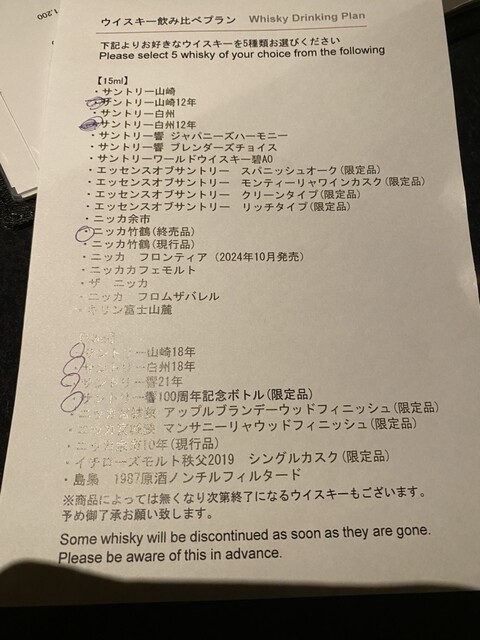 1,200
ウイスキー飲み比べプラン Whisky Drinking Plan
下記よりお好きなウイスキーを5種類お選びください
Please select 5 whisky of your choice from the following
【15ml】
・サントリー山崎
・サントリー山崎12年
・サントリー白州
・サントリー白州12年
・サントリー響 ジャパニーズハーモニー
・サントリー響 ブレンダーズチョイス
・サントリーワールドウイスキー碧AO
・エッセンスオブサントリー スパニッシュオーク(限定品)
・エッセンスオブサントリー モンティーリャワインカスク(限定品)
・エッセンスオブサントリー クリーンタイプ(限定品)
・エッセンスオブサントリー リッチタイプ(限定品)
・ニッカ余市
・ニッカ竹鶴(終売品)
・ニッカ竹鶴(現行品)
・ニッカ フロンティア (2024年10月発売)
・ニッカカフェモルト
・ザ ニッカ
・ニッカ フロムザバレル
・キリン富士山麓
サントリー山崎18年
サントリー白州18年
サントリー響21年
サントリー響100周年記念ボトル(限定品)
アップルブランデーウッドフィニッシュ(限定品)
マンサニーリャウッドフィニッシュ(限定品)
10年(現行品)
・イチローズモルト秩父2019 シングルカスク(限定品)
・島梟 1987原酒ノンチルフィルタード
※商品によっては無くなり次第終了になるウイスキーもございます。
予め御了承お願い致します。
Some whisky will be discontinued as soon as they are gone.
Please be aware of this in advance.